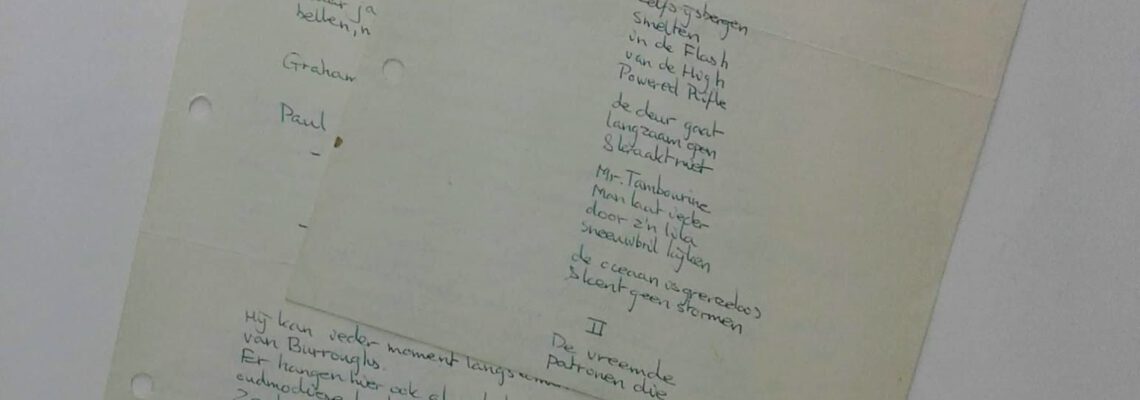 bellen, n
Graham
Paul
-
-
Hij kan ieder moment langskomen
van Burroughs.
Er hangen hier ook
zelfs ijsbergen
smelten
in de Flash
van de High
Powered Rifle
de deur gaat
langzaam open
& kraakt niet
Mr. Tambourine
Man laat ieder
door z'n lila
sneeuwbril kijken
de oceaan is grenzeloos
& kent geen stormen
II
De vreemde
patronen die